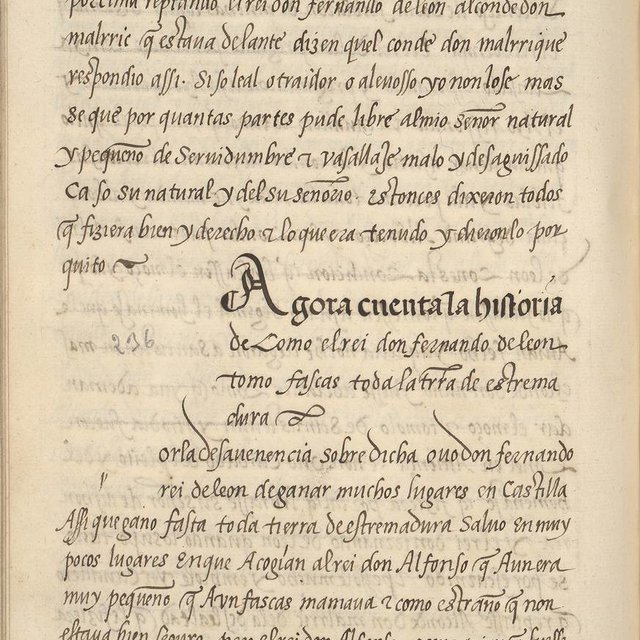 por cima reptando el rei don fernando de leon al conde don
malrric q̃ estava delante dizen quel conde don malrrique
respondio assi. Si so leal o traidor o alevosso yo non lo se mas
se que por quantas partes pude libre al mio señor natural
y pequeño de Servidumbre τ vasallaje malo y desaguissado
Ca so su natural y del su señorio. estonces dixeron todos
q̃ fiziera bien y derecho τ lo que era tenudo y dieronlo por
quito
Agora cuenta la historia
236
de Como el rei don fernando de leon
tomo fascas toda la trr̃a de estrema
dura
or la desavenencia sobre dicha ovo don fernando
rei de leon de ganar muchos lugares en Castilla
Assi que gano fasta toda tierra de estremadura Salvo en muy
pocos lugares En que Acogian al rei don Alfonso q̃ Aun era
muy pequeño q̃ Ayn fascas mamava τ como estraño q̃ non
estava bien seguro